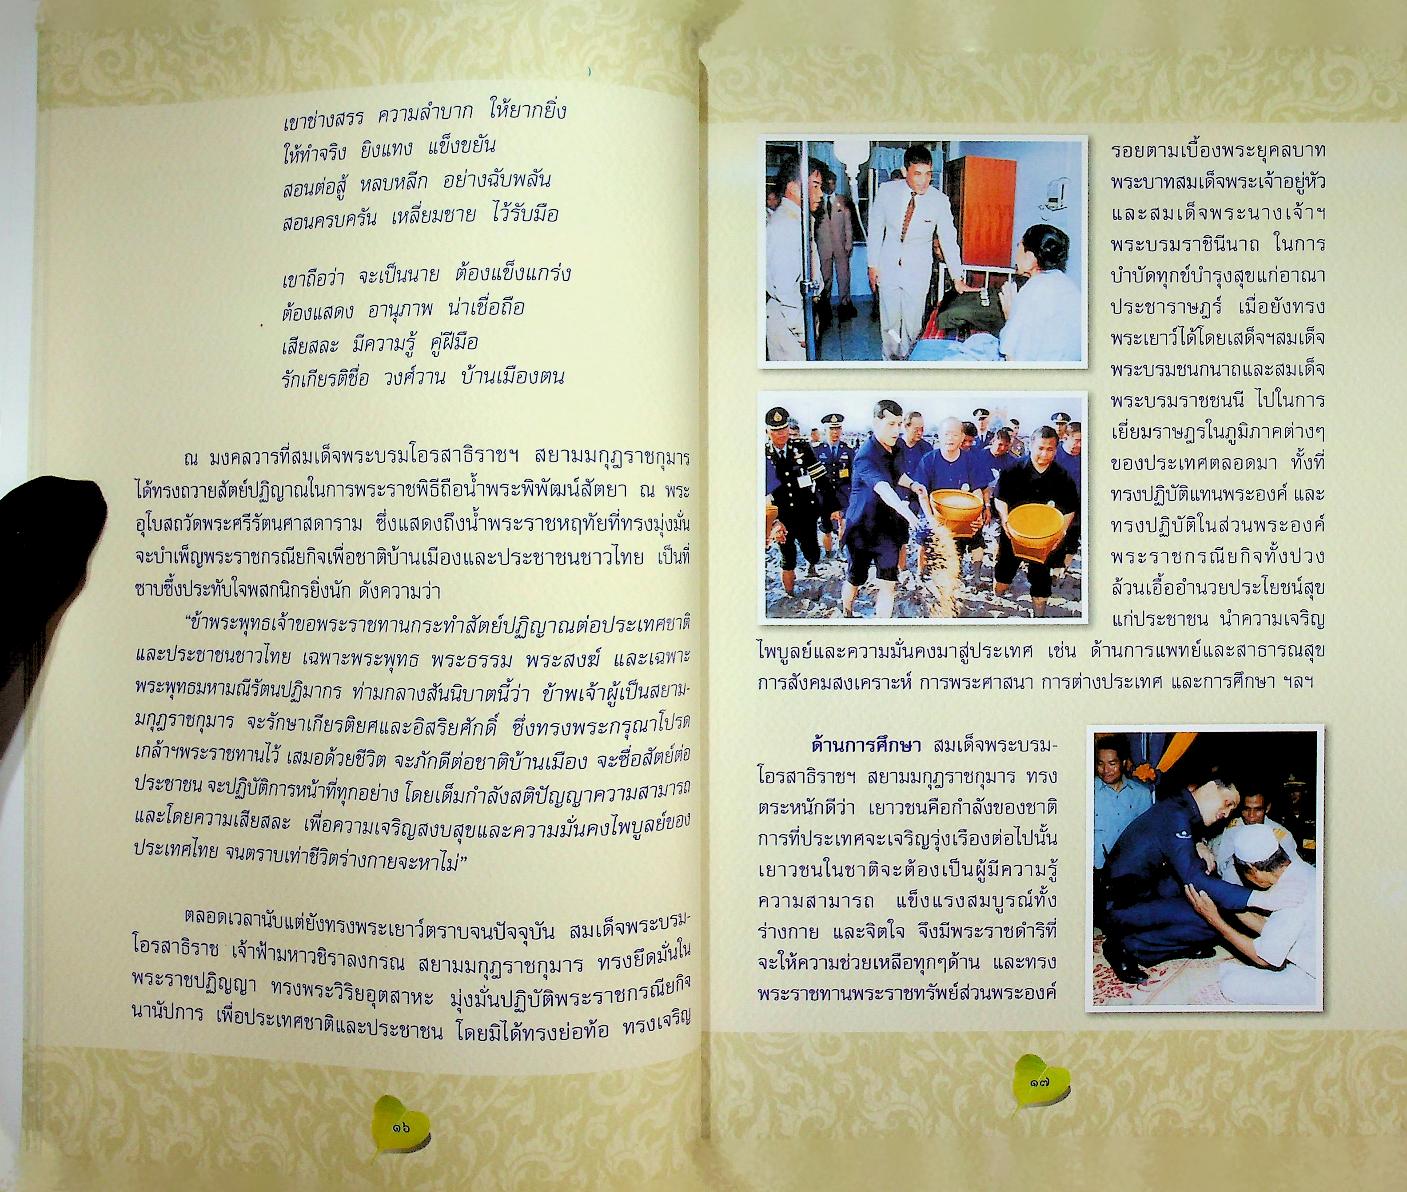 เขาช่างสรร ความลำบาก ให้ยากยิ่ง
ให้ทำจริง ยิงแทง แข็งขยัน
สอนต่อสู้ หลบหลีก อย่างฉับพลัน
สอนครบครัน เหลี่ยมชาย ไว้รับมือ
เขาถือว่า จะเป็นนาย ต้องแข็งแกร่ง
ต้องแสดง อานุภาพ น่าเชื่อถือ
เสียสละ มีความรู้ คู่ฝีมือ
รักเกียรติชื่อ วงศ์วาน บ้านเมืองตน
ณ มงคลวารที่สมเด็จพระบรมโอรสาธิราชฯ สยามมกุฎราชกุมาร
ได้ทรงถวายสัตย์ปฏิญาณในการพระราชพิธีถือน้ำพระพิพัฒน์สัตยา ณ พระ
อุโบสถวัดพระศรีรัตนศาสดาราม ซึ่งแสดงถึงน้ำพระราชหฤทัยที่ทรงมุ่งมั่น
จะบำเพ็ญพระราชกรณียกิจเพื่อชาติบ้านเมืองและประชาชนชาวไทย เป็นที่
ซาบซึ้งประทับใจพสกนิกรยิ่งนัก ดังความว่า
“ข้าพระพุทธเจ้าขอพระราชทานกระทำสัตย์ปฏิญาณต่อประเทศชาติ
และประชาชนชาวไทย เฉพาะพระพุทธ พระธรรม พระสงฆ์ และเฉพาะ
พระพุทธมหามณีรัตนปฏิมากร ท่ามกลางสันนิบาตนี้ว่า ข้าพเจ้าผู้เป็นสยาม-
มกุฎราชกุมาร จะรักษาเกียรติยศและอิสริยศักดิ์ ซึ่งทรงพระกรุณาโปรด
เกล้าฯพระราชทานไว้ เสมอด้วยชีวิต จะภักดีต่อชาติบ้านเมือง จะซื่อสัตย์ต่อ
ประชาชน จะปฏิบัติการหน้าที่ทุกอย่าง โดยเต็มกำลังสติปัญญาความสามารถ
และโดยความเสียสละ เพื่อความเจริญสงบสุขและความมั่นคงไพบูลย์ของ
ประเทศไทย จนตราบเท่าชีวิตร่างกายจะหาไม่”
ตลอดเวลานับแต่ยังทรงพระเยาว์ตราบจนปัจจุบัน สมเด็จพระบรม-
โอรสาธิราช เจ้าฟ้ามหาวชิราลงกรณ สยามมกุฎราชกุมาร ทรงยึดมั่นใน
พระราชปฏิญญา ทรงพระวิริยอุตสาหะ มุ่งมั่นปฏิบัติพระราชกรณียกิจ
นานัปการ เพื่อประเทศชาติและประชาชน โดยมิได้ทรงย่อท้อ ทรงเจริญ
๑๖
รอยตามเบื้องพระยุคลบาท
พระบาทสมเด็จพระเจ้าอยู่หัว
และสมเด็จพระนางเจ้าฯ
พระบรมราชินีนาถ ในการ
บำบัดทุกข์บำรุงสุขแก่อาณา
ประชาราษฎร์ เมื่อยังทรง
พระเยาว์ได้โดยเสด็จฯสมเด็จ
พระบรมชนกนาถและสมเด็จ
พระบรมราชชนนี ไปในการ
เยี่ยมราษฎรในภูมิภาคต่างๆ
ของประเทศตลอดมา ทั้งที่
ทรงปฏิบัติแทนพระองค์ และ
ทรงปฏิบัติในส่วนพระองค์
พระราชกรณียกิจทั้งปวง
ล้วนเอื้ออำนวยประโยชน์สุข
แก่ประชาชน นำความเจริญ
ไพบูลย์และความมั่นคงมาสู่ประเทศ เช่น ด้านการแพทย์และสาธารณสุข
การสังคมสงเคราะห์ การพระศาสนา การต่างประเทศ และการศึกษา ฯลฯ
ด้านการศึกษา สมเด็จพระบรม-
โอรสาธิราชฯ สยามมกุฎราชกุมาร ทรง
ตระหนักดีว่า เยาวชนคือกำลังของชาติ
การที่ประเทศจะเจริญรุ่งเรืองต่อไปนั้น
เยาวชนในชาติจะต้องเป็นผู้มีความรู้
ความสามารถ แข็งแรงสมบูรณ์ทั้ง
ร่างกาย และจิตใจ จึงมีพระราชดำริที่
จะให้ความช่วยเหลือทุกๆด้าน และทรง
พระราชทานพระราชทรัพย์ส่วนพระองค์
๑๗